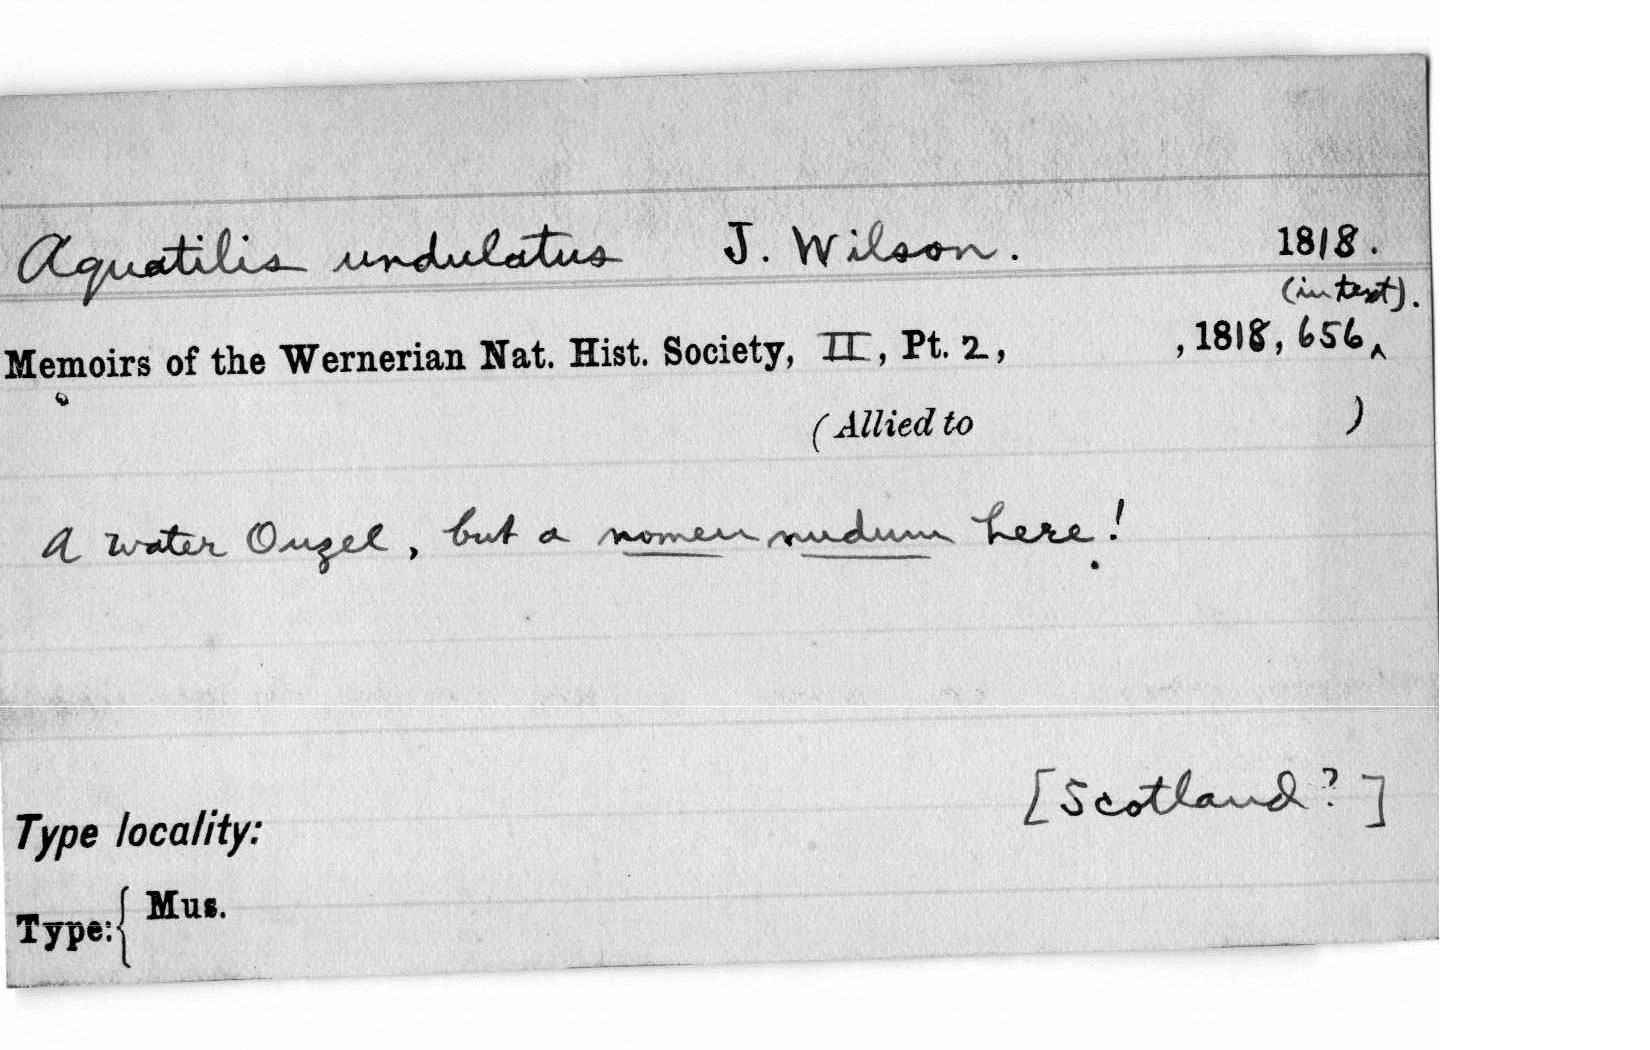 Aquatilis undulatus J. Wilson. 1818.
(in text).
Memoirs of the Wernerian Nat. Hist. Society, II, Pt. 2, , 1818, 656‸
(Allied to )
A water Ouzel, but a nomen nudum here!
[Scotland?]
Type locality:
Type:{ Mus.